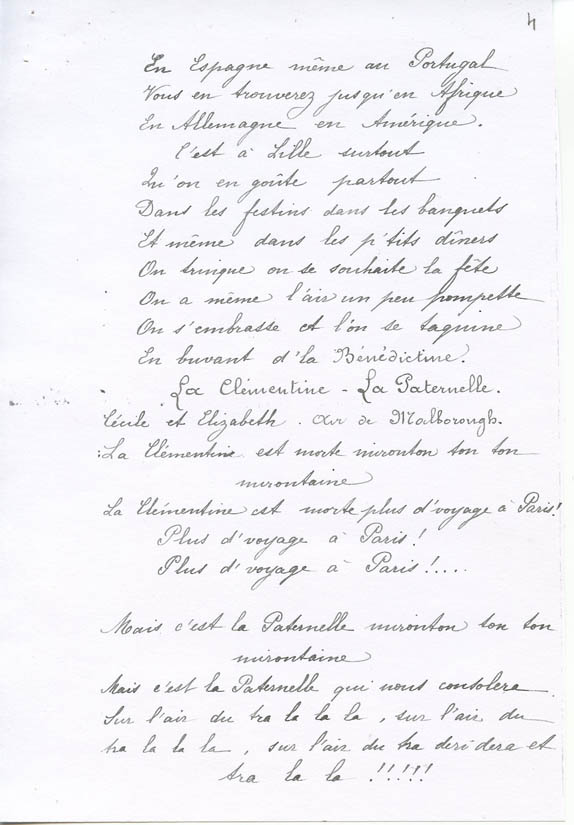 4
En Espagne même au Portugal
Vous en trouverez jusqu'en Afrique
En Allemagne en Amérique.
C'est à Lille surtout
Qu'on en goûte partout
Dans les festins dans les banquets
Et même dans les p'tits dîners
On trinque on se souhaite la fête
On a même l'air un peu pompette
On s'embrasse et l'on se taquine
En buvant d'la Bénédictine.
La Clémentine - La Paternelle.
Cécile et Elizabeth. Air de Malborough.
La Clémentine est morte mironton ton ton
mirontaine
La Clémentine est morte plus d'voyage à Paris!
Plus d'voyage à Paris!
Plus d'voyage à Paris!....
Mais c'est la Paternelle mironton ton ton
mirontaine
Mais c'est la Paternelle qui nous consolera
Sur l'air du tra la la la, sur l'air du
tra la la la, sur l'air du tra deridera et
tra la la !!!!!